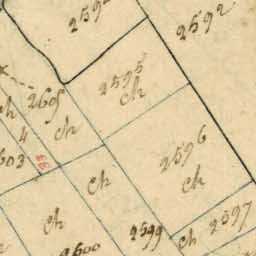 2592
2595
ch
2605
ch
ch
4
2596
ch
ch
ch
2597
ch
2599
2600